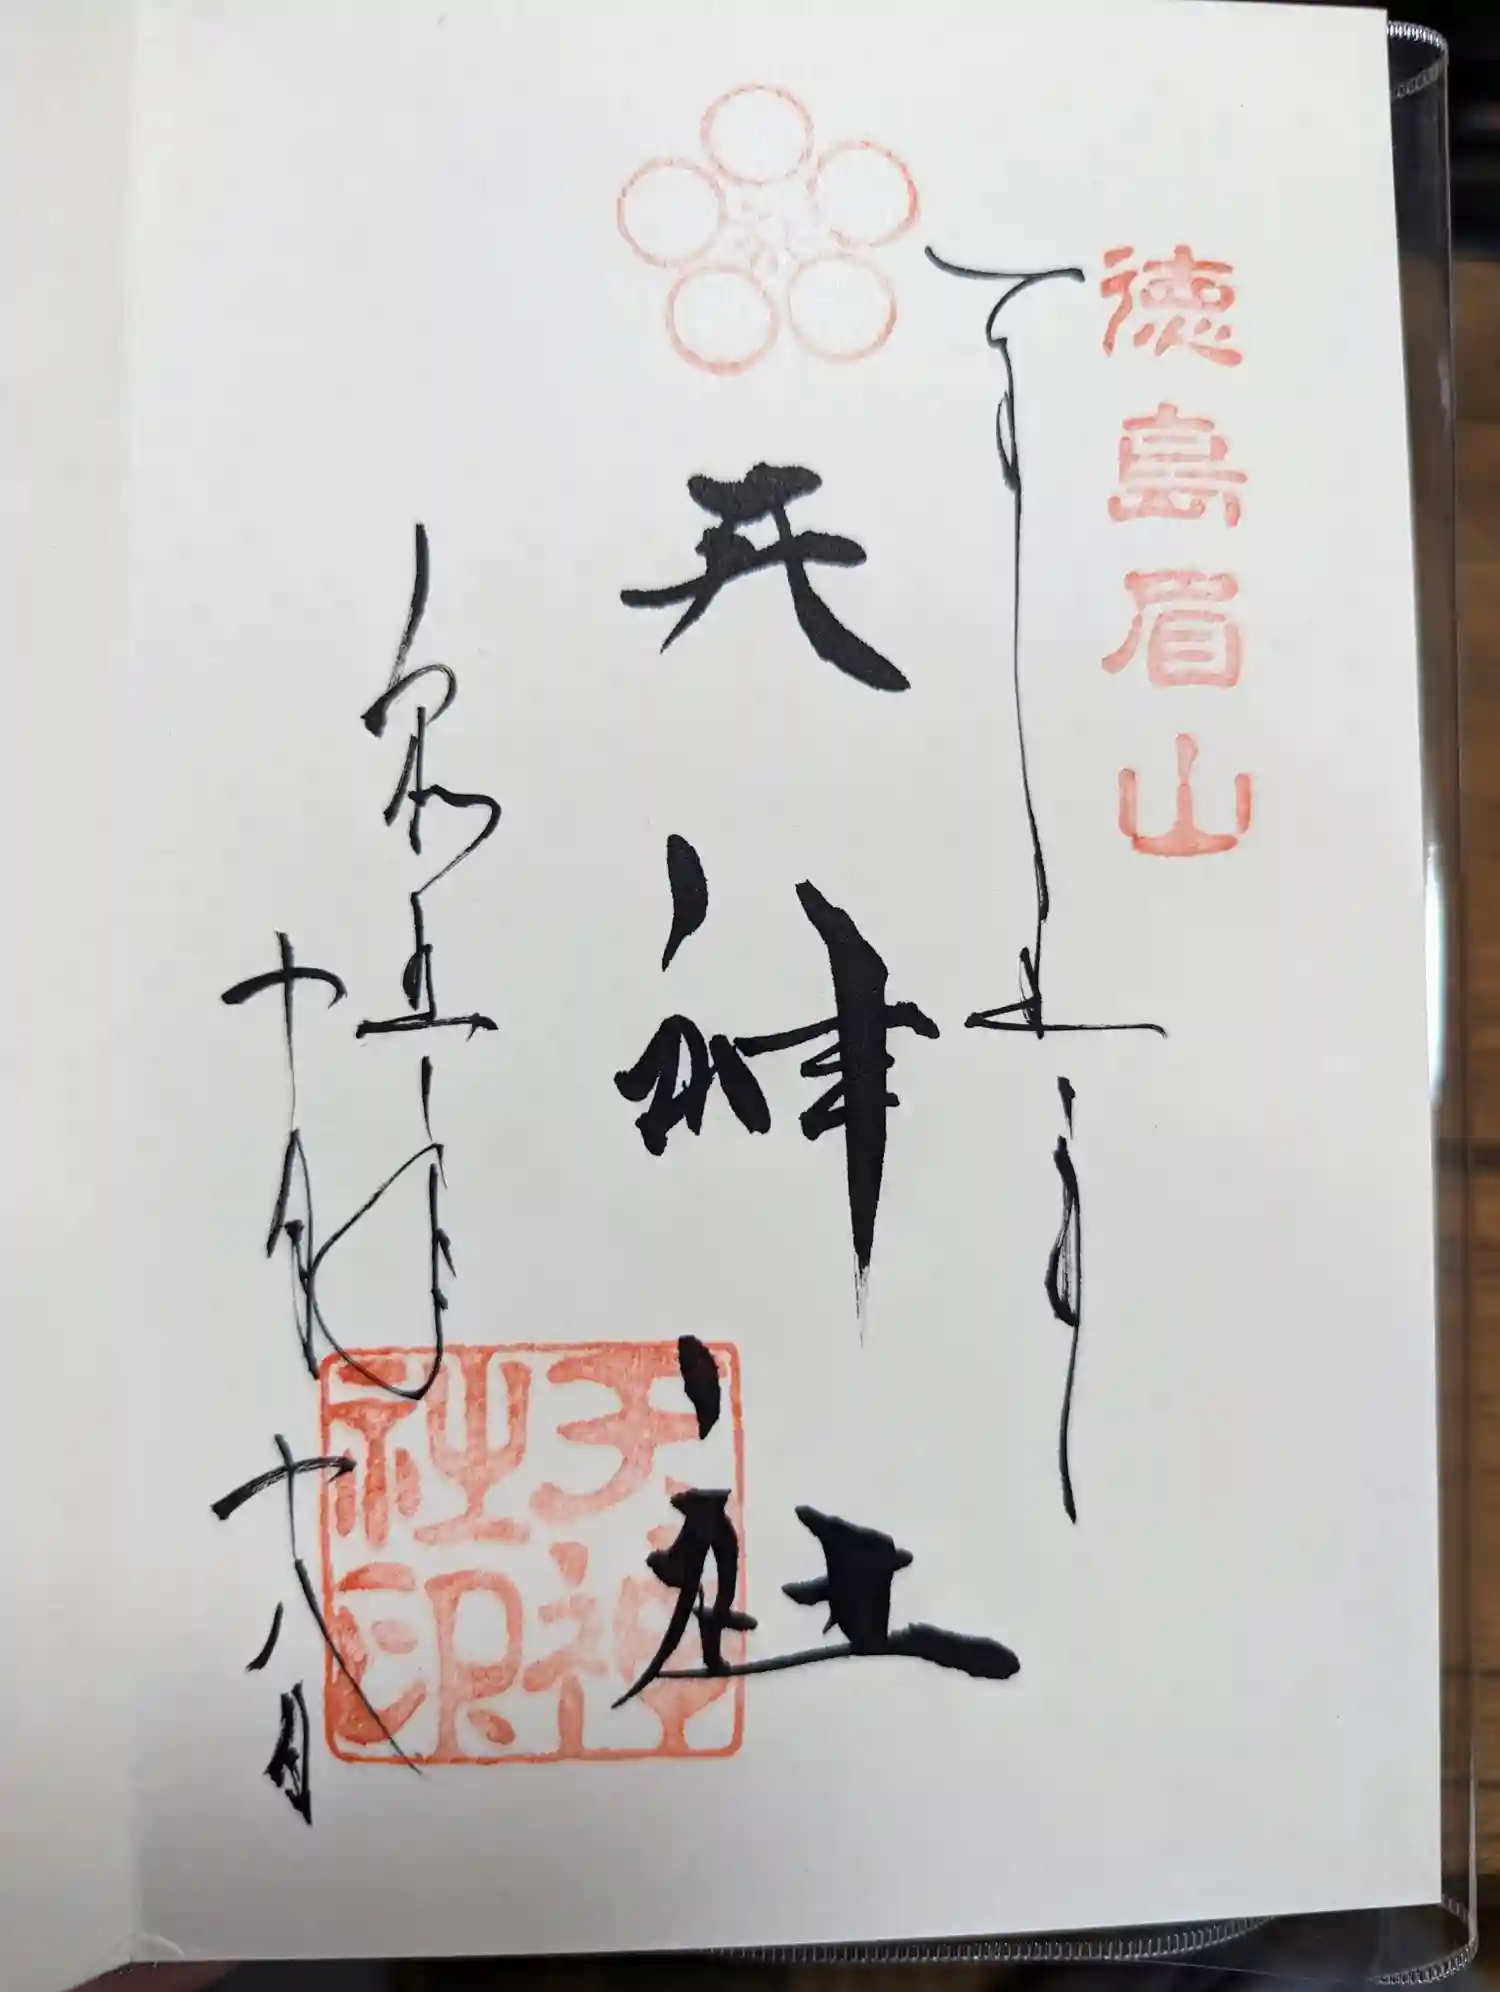 徳島眉山
天神社
令和五年
十月十八日
天神社印